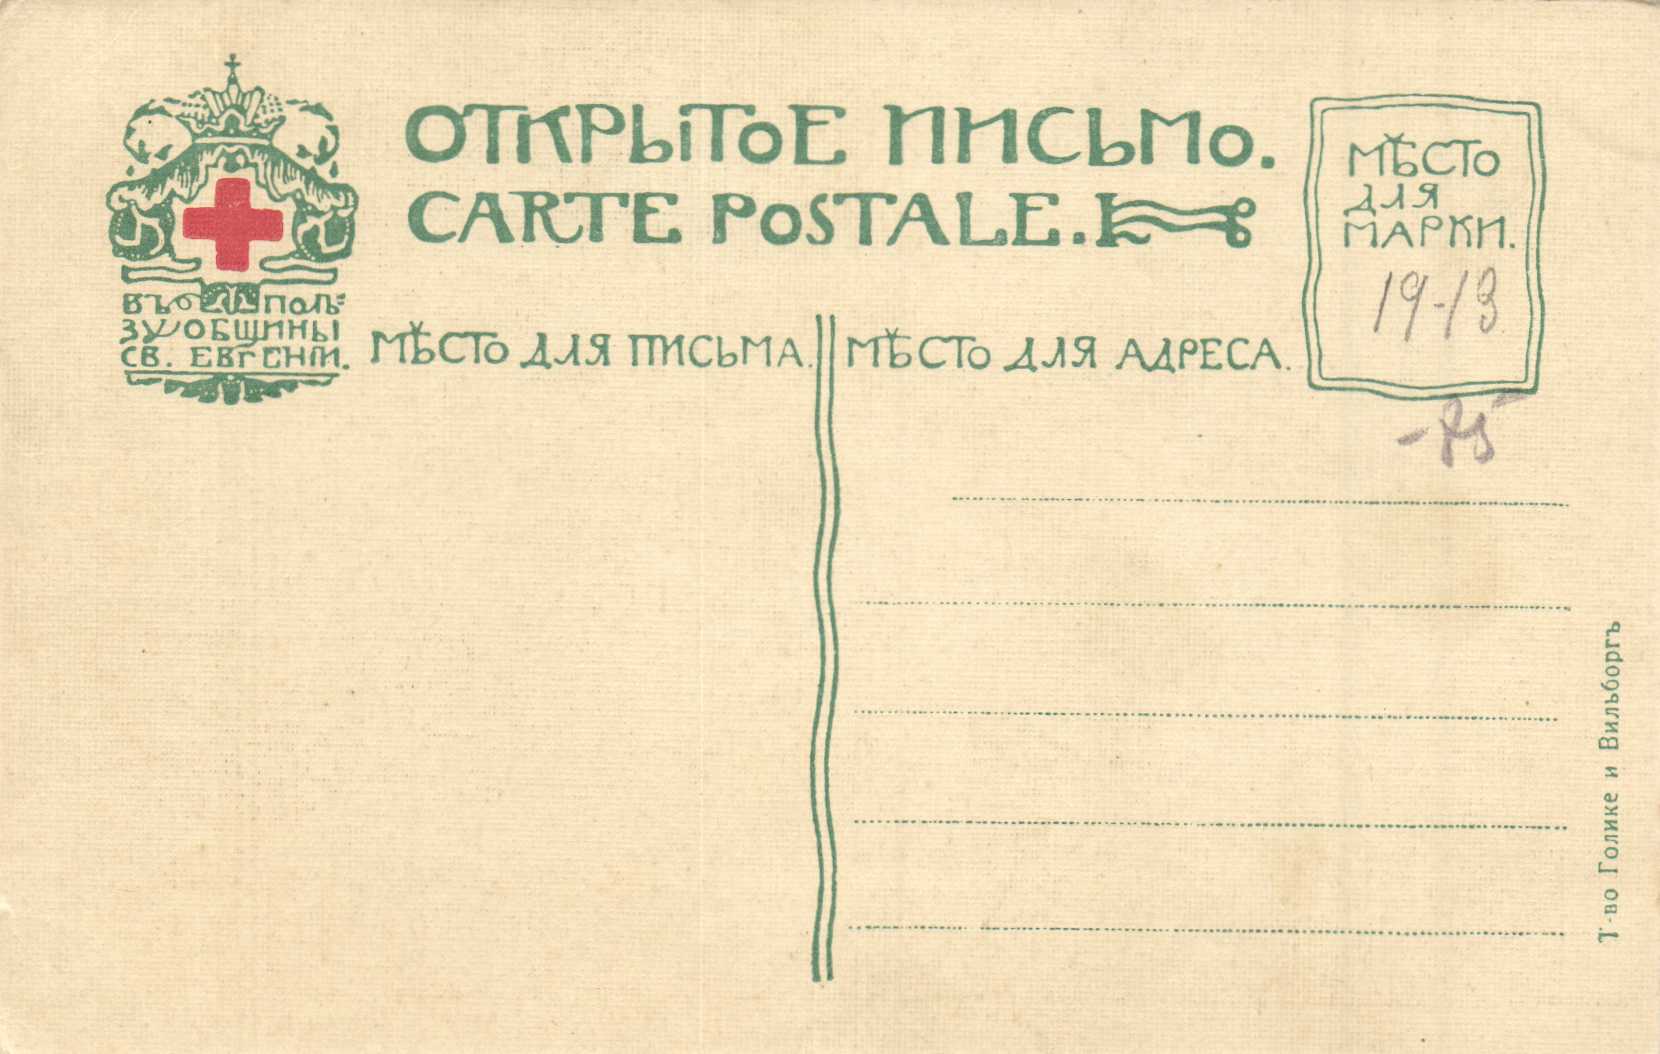 ОТКРЫТОЕ ПИСЬМО.
CARTE POSTALE.
ВЪ ПОЛЬ=
ЗУ ОБЩИНЫ
СВ. ЕВГЕНІИ.
МѢСТО ДЛЯ ПИСЬМА.
МѢСТО ДЛЯ АДРЕСА.
МѢСТО
ДЛЯ
МАРКИ.
19-13
Т-во Голике и Вильборгъ